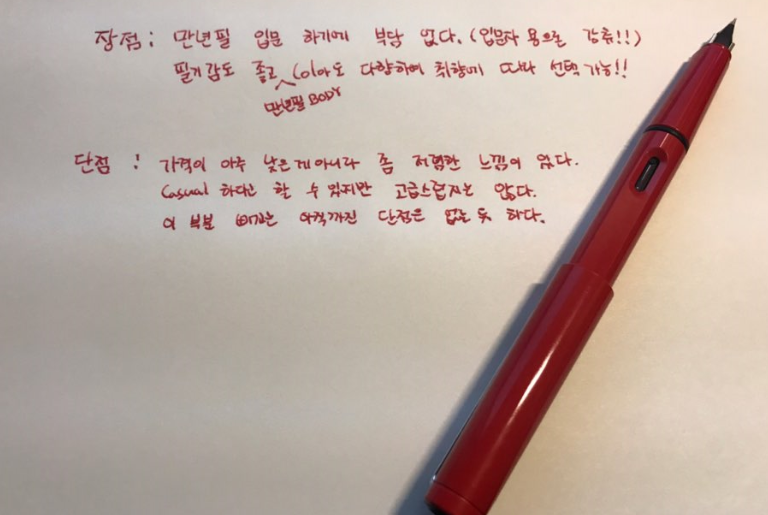 장점 : 만년필 입문 하기에 부담 없다. (입문자 용으로 강츄!!)
필기감도 좋고 (이)아도 다양하여 취향에 따라 선택 가능!!
만년필 BODY
단점 : 가격이 아주 낮은게 아니라 좀 저렴한 느낌이 있다.
Casual 하다고 할 수 있지만 고급스럽지는 않다.
이 부분 빼고는 아직까진 단점은 없는 듯 하다.